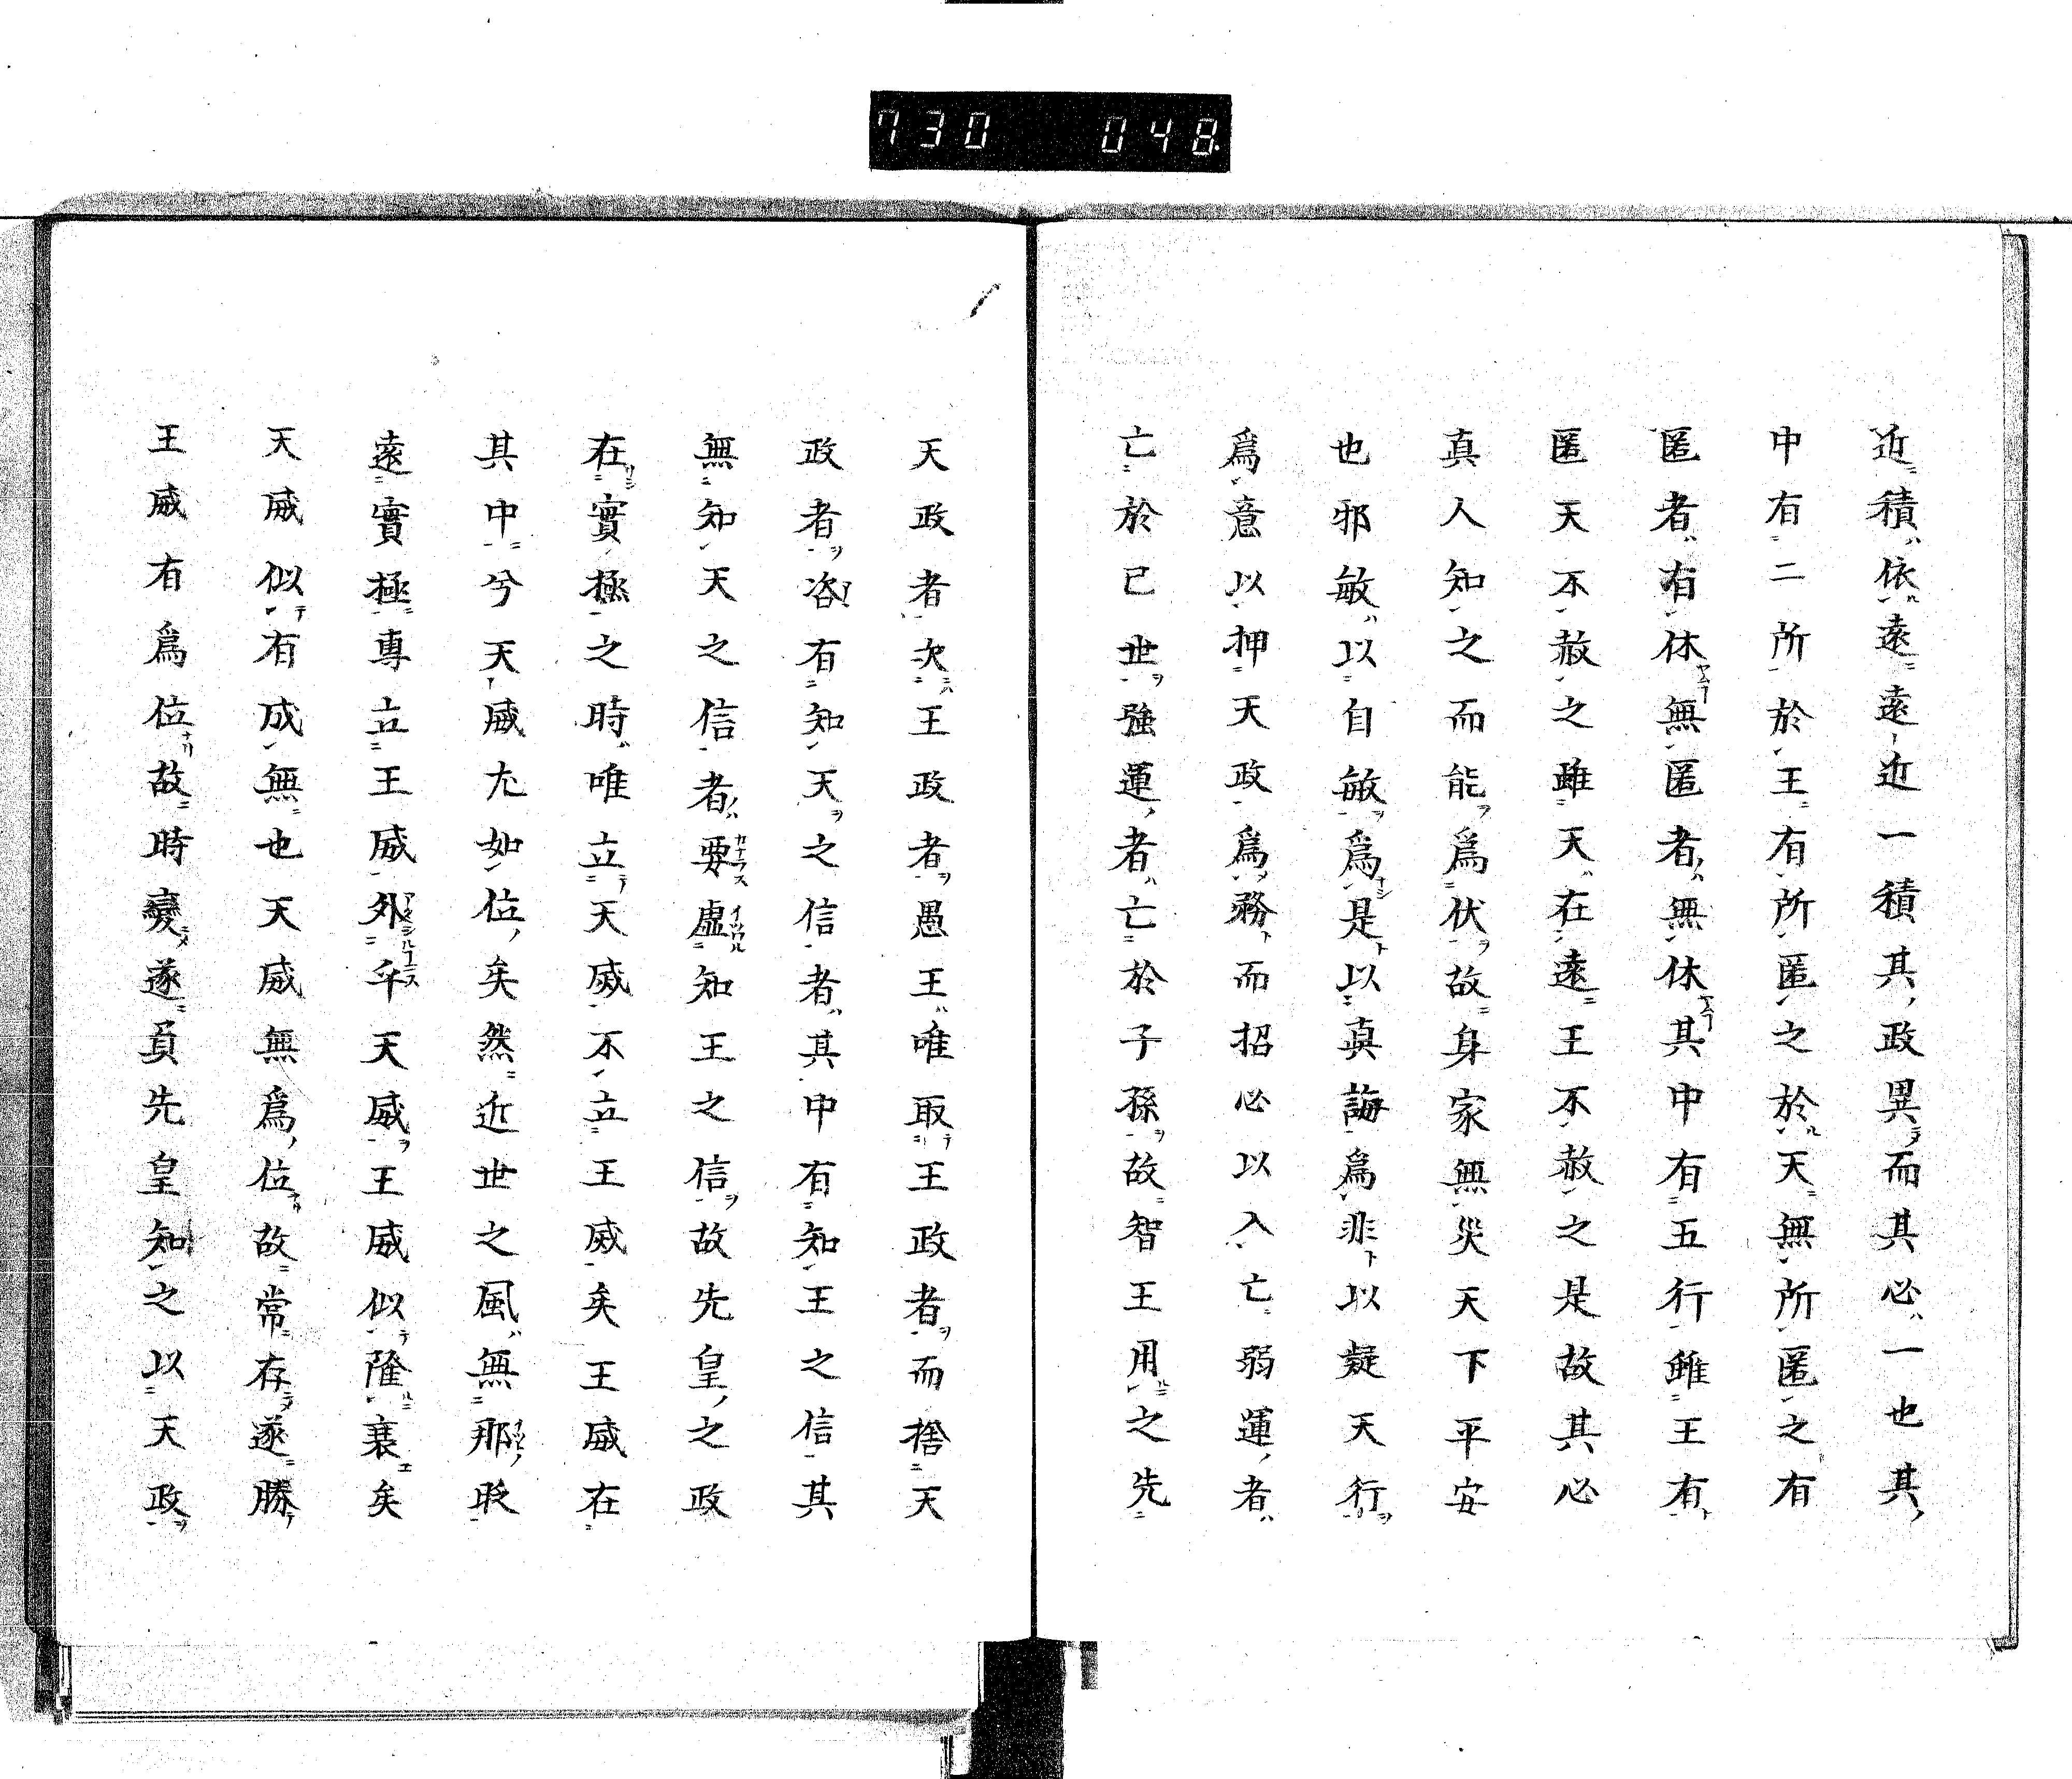 730 048
近積依遠遠近一積其政異而其必一也其
中有二所於王有所匿之於天無所匿之有
匿者有休無匿者無休其中有五行雖王有
匿天不赦之雖天在遠王不赦之是故其必
真人知之而能爲伏故身家無災天下平安
也邪敏以自敏爲是以真誨爲非以疑天行
爲意以押天政爲務而招必以入亡弱運者
亡於己世強運者亡於子孫故智王用之先
天政者次王政者愚王唯取王政者而捨天
政者咨有知天之信者其中有知王之信其
無知天之信者要虛知王之信故先皇之政
在實極之時唯立天威不立王威矣王威在
其中兮天威尢如位矣然近世之風無那取
遠實極專立王威外乎天威王威似隆衰矣
天威似有成無也天威無爲位故常存遂勝
王威有爲位故時變遂負先皇知之以天政